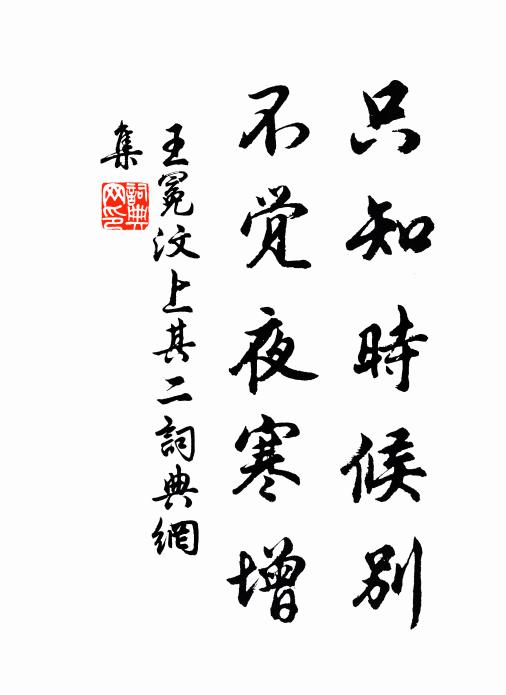 只知時候別
不觉夜寒增
王冕汶上其二詞典網
集
詞典网印